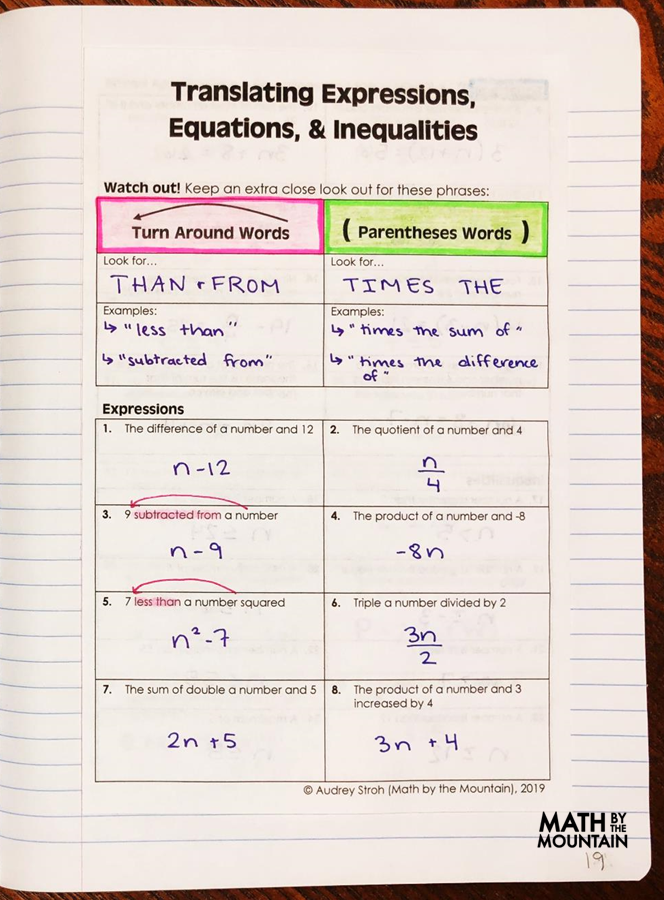 Translating Expressions,
Equations, & Inequalities
Watch out! Keep an extra close look out for these phrases:
Turn Around Words
( Parentheses Words )
Look for...
THAN & FROM
Look for...
TIMES THE
Examples:
↳ "less than"
↳ "subtracted from"
Examples:
↳ "times the sum of"
↳ "times the difference
of"
Expressions
1. The difference of a number and 12
n - 12
2. The quotient of a number and 4
n
4
3. 9 subtracted from a number
n - 9
4. The product of a number and -8
-8n
5. 7 less than a number squared
n² - 7
6. Triple a number divided by 2
3n
2
7. The sum of double a number and 5
2n + 5
8. The product of a number and 3
increased by 4
3n + 4
© Audrey Stroh (Math by the Mountain), 2019
MATH BY THE
MOUNTAIN
19